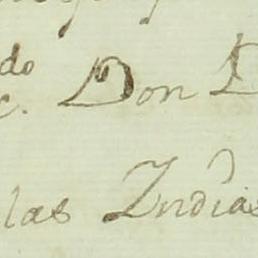 do
c. Don D
las Indias